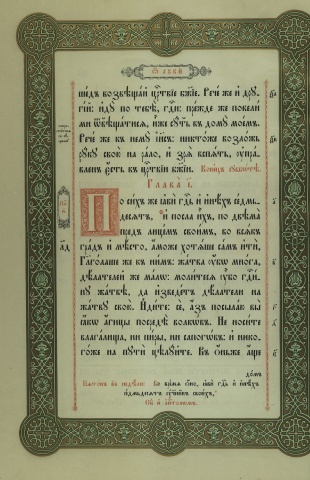 шедъ возвѣщай црⷭ҇твіе бж҃іе. Рече́ же и҆ дрꙋ-
гі́й: и҆дꙋ̀ по тебѣ̀, гдⷭ҇и: пре́жде же повели́
ми ѿвѣща́тисѧ, и҆̀же сꙋ́ть въ домꙋ̀ мое́мъ.
Рече́ же къ немꙋ̀ і҆и҃съ: никто́же возло́жь
рꙋ́кꙋ свою̀ на ра́ло, и҆ зрѧ̀ вспѧ́ть, ᲂу҆пра́-
вленъ є҆́сть въ црⷭ҇твіи бж҃іи. Коне́цъ
Глава̀ і҃.
По си́хъ же ꙗ҆вѝ гдⷭ҇ь и҆ и҆нѣ́хъ се́дмь-
десѧтъ, и҆ посла̀ и҆̀хъ по двѣма̀
пред̾ лице́мъ свои́мъ, во всѧ́къ
гра́дъ и҆ мѣ́сто, а҆́може хотѧ́ше са́мъ и҆тѝ,
Глаго́лаше же къ ни̑мъ: жа́тва ᲂу҆́бѡ мно́га,
дѣ́лателей же ма́лѡ: моли́тесѧ ᲂу҆̀бо гдⷭ҇и́-
нꙋ жа́твѣ, да и҆зведе́тъ дѣ́латели на
жа́твꙋ свою̀. И҆ди́те: сѐ, а҆́зъ посыла́ю вы̀
ꙗ҆́кѡ а҆́гнцы посредѣ̀ волкѡ́въ. Не носи́те
влага́лища, ни пи́ры, ни сапогѡ́въ: и҆ нико-
го́же на пꙋтѝ цѣлꙋ́йте. Въ ѻ҆́ньже а҆́ще
до́мъ
во вре́мѧ ѻ҆́но, ꙗ҆вѝ гдⷭ҇ь и҆ и҆нѣ́хъ